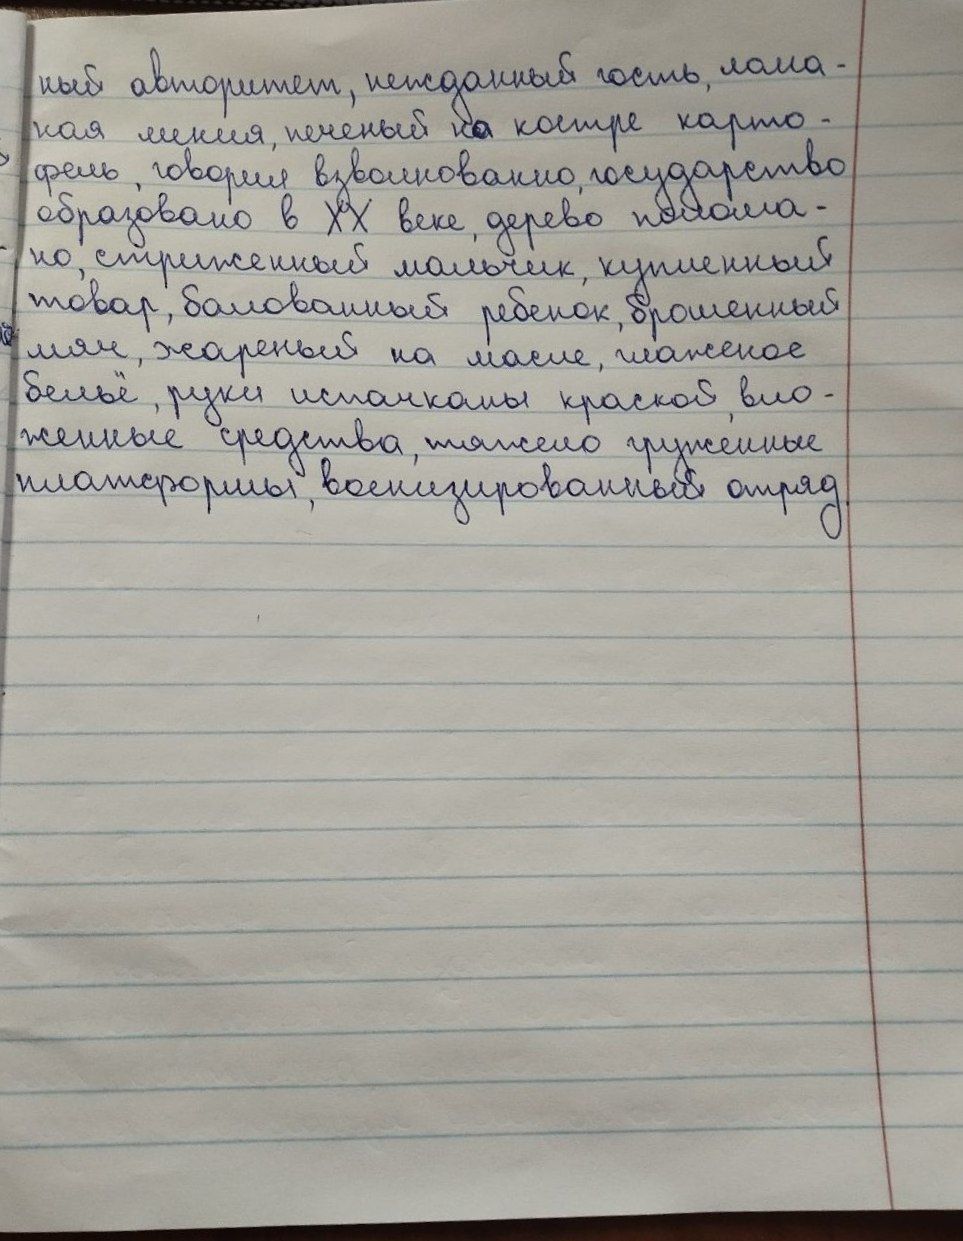 ный авторитет, нежданный гость, лома-
ная линия, печеный на костре карто-
фель, говорил взволнованно, государство
образовано в XX веке, дерево полома-
но, стриженный мальчик, купленный
товар, балованный ребенок, брошенный
мяч, жареный на масле, глаженое
бельё, руки испачканы краской, вло-
женные средства, тяжело груженные
платформы, военизированный отряд.